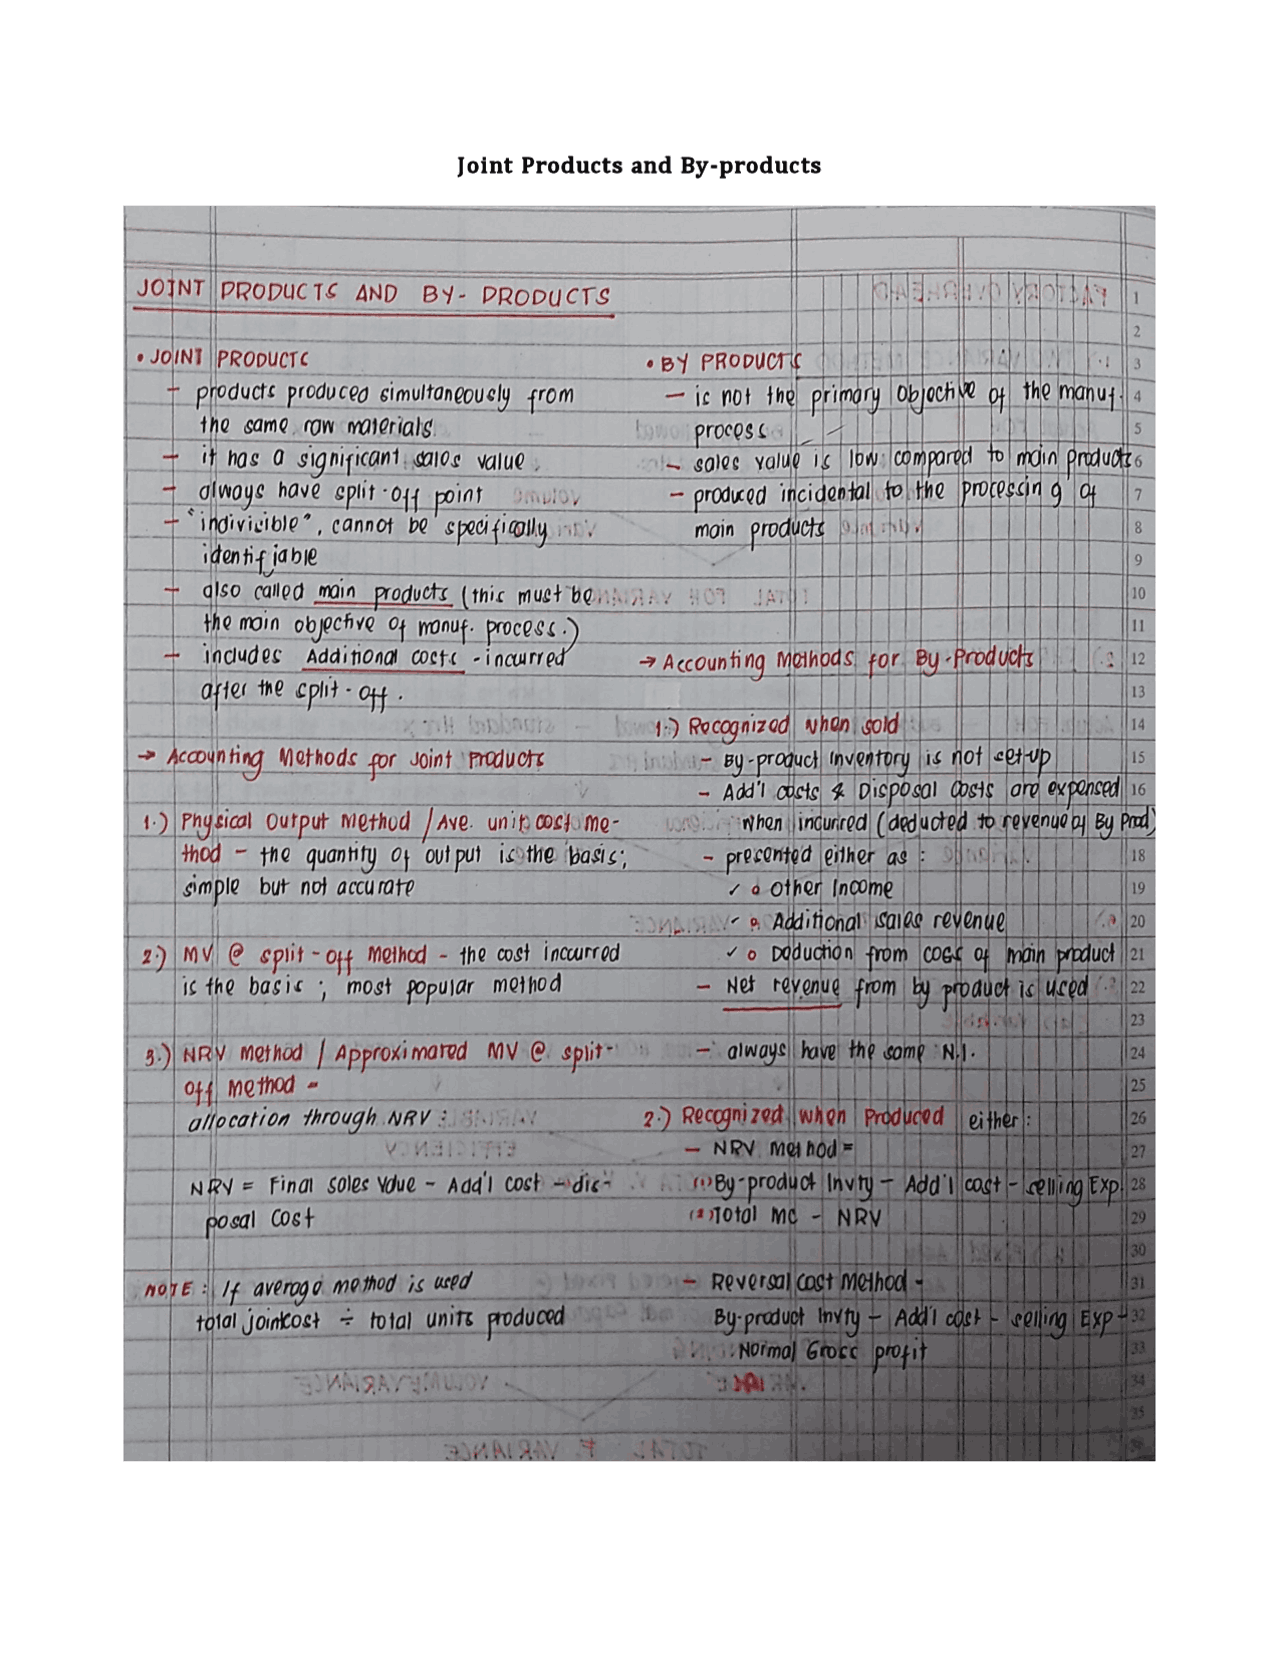 Joint Products and By-products
JOINT PRODUCTS AND BY- PRODUCTS
• JOINT PRODUCTS
– products produced simultaneously from
the same raw materials
– it has a significant sales value
– always have split-off point
– "indivisible", cannot be specifically
identifiable
– also called main products (this must be
the main objective of manuf. process.)
– includes Additional costs - incurred
after the split-off.
→ Accounting Methods for Joint Products
1.) Physical Output Method / Ave. unit cost me-
thod – the quantity of output is the basis;
simple but not accurate
2.) MV @ split-off Method – the cost incurred
is the basis ; most popular method
3.) NRV Method / Approximated MV @ split-
off Method –
allocation through NRV :
NRV = Final sales value – Add'l cost – dis-
posal cost
NOTE : If average method is used
total joint cost ÷ total units produced
• BY PRODUCTS
– is not the primary objective of the manuf.
process
– sales value is low compared to main products
– produced incidental to the processing of
main products
→ Accounting Methods for By-Products
1.) Recognized when sold
– By-product Inventory is not set-up
– Add'l costs & Disposal costs are expensed
when incurred (deducted to revenue of By Prod)
– presented either as :
✓ o Other Income
✓ o Additional sales revenue
✓ o Deduction from COGS of main product
– Net revenue from by product is used
– always have the same N.I.
2.) Recognized when Produced either :
– NRV method =
(1) By-product Invty – Add'l cost – selling Exp.
(2) Total MC – NRV
– Reversal cost Method –
By-product Invty – Add'l cost – selling Exp –
Normal Gross profit
1
2
3
4
5
6
7
8
9
10
11
12
13
14
15
16
18
19
20
21
22
23
24
25
26
27
28
29
30
31
32
33
34
35